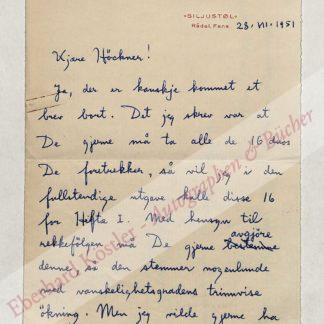 »SILJUSTØL«
Rådal, Fana
28. VII. 1951
Kjære Höckner!
Ja, der er kanskje kommet et
brev bort. Det jeg skrev var at
De gjerne må ta alle de 16 duos
De foretrekker, så vil jeg i den
fullstendige utgave kalle disse 16
for Hefte I. Med hensyn til
rekkefölgen må De gjerne avgjöre
denne, så den stemmer nogenlunde
med vanskelighetsgradens trinnvise
ökning. Men jeg vilde gjerne ha
Eberhard Köstler - Autographen & Bücher